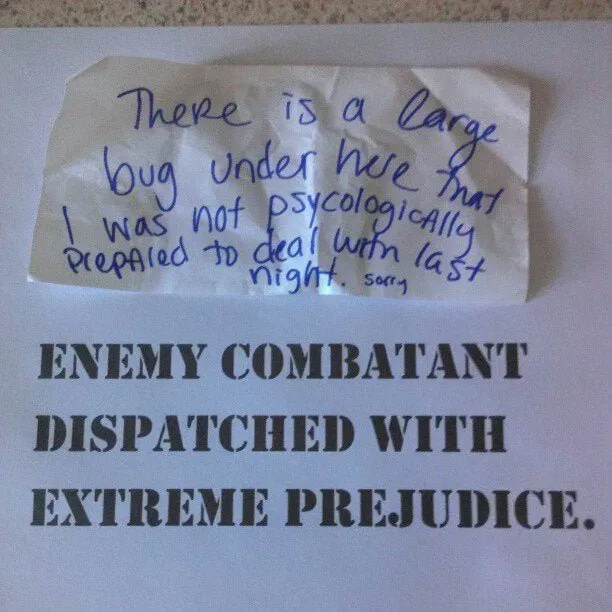 There is a large
bug under here that
I was not psycologically
prepared to deal with last
night. sorry
ENEMY COMBATANT
DISPATCHED WITH
EXTREME PREJUDICE.